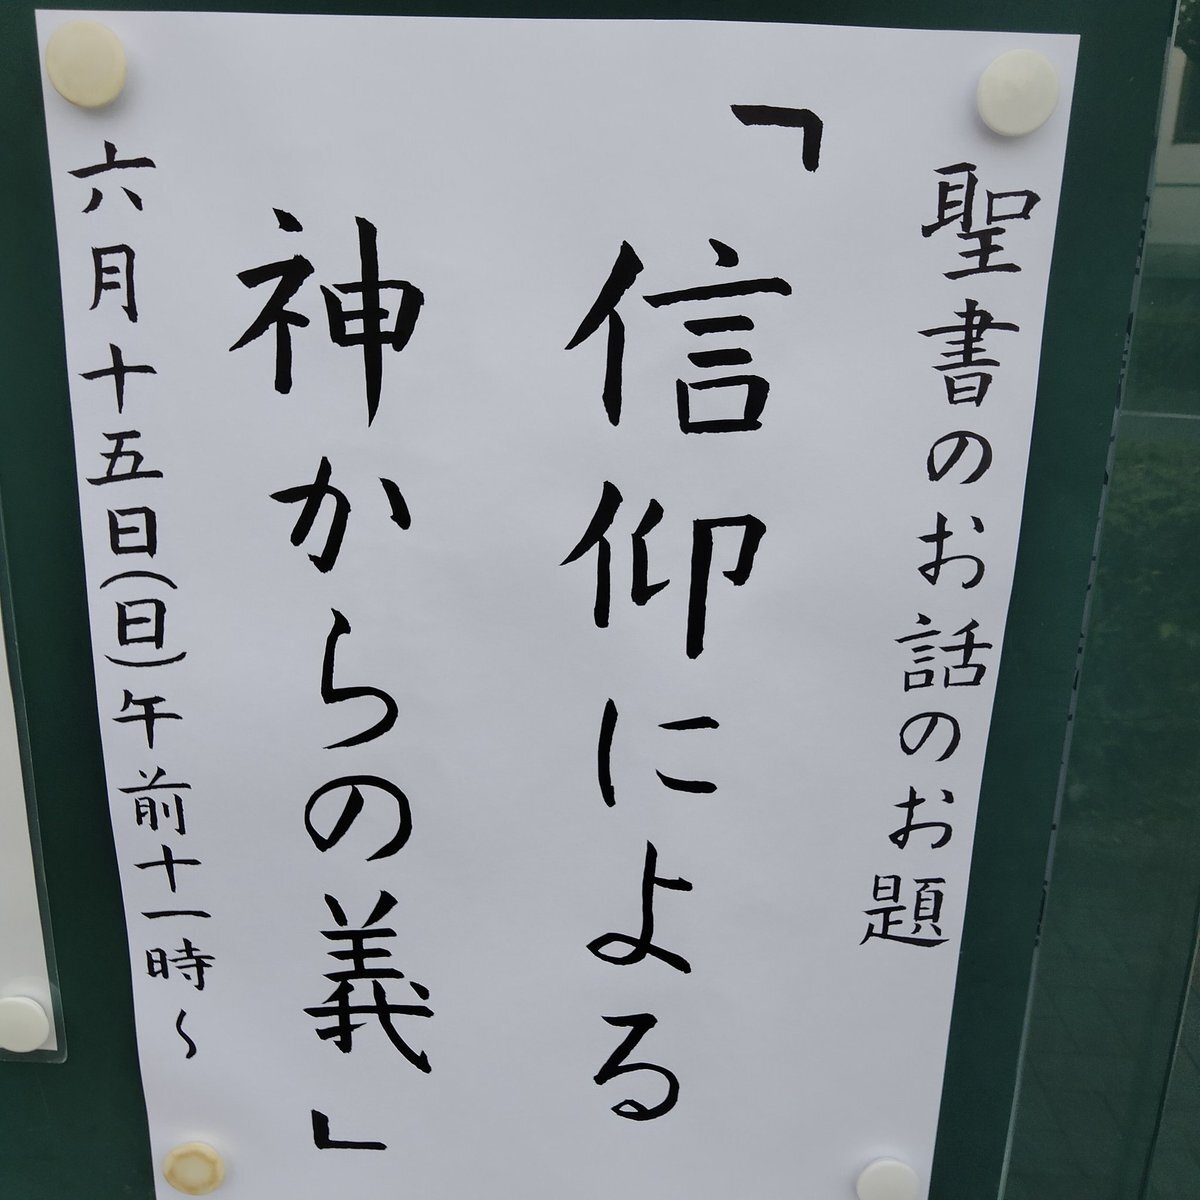 聖書のお話のお題
「信仰による
神からの義」
六月十五日(日)午前十一時～